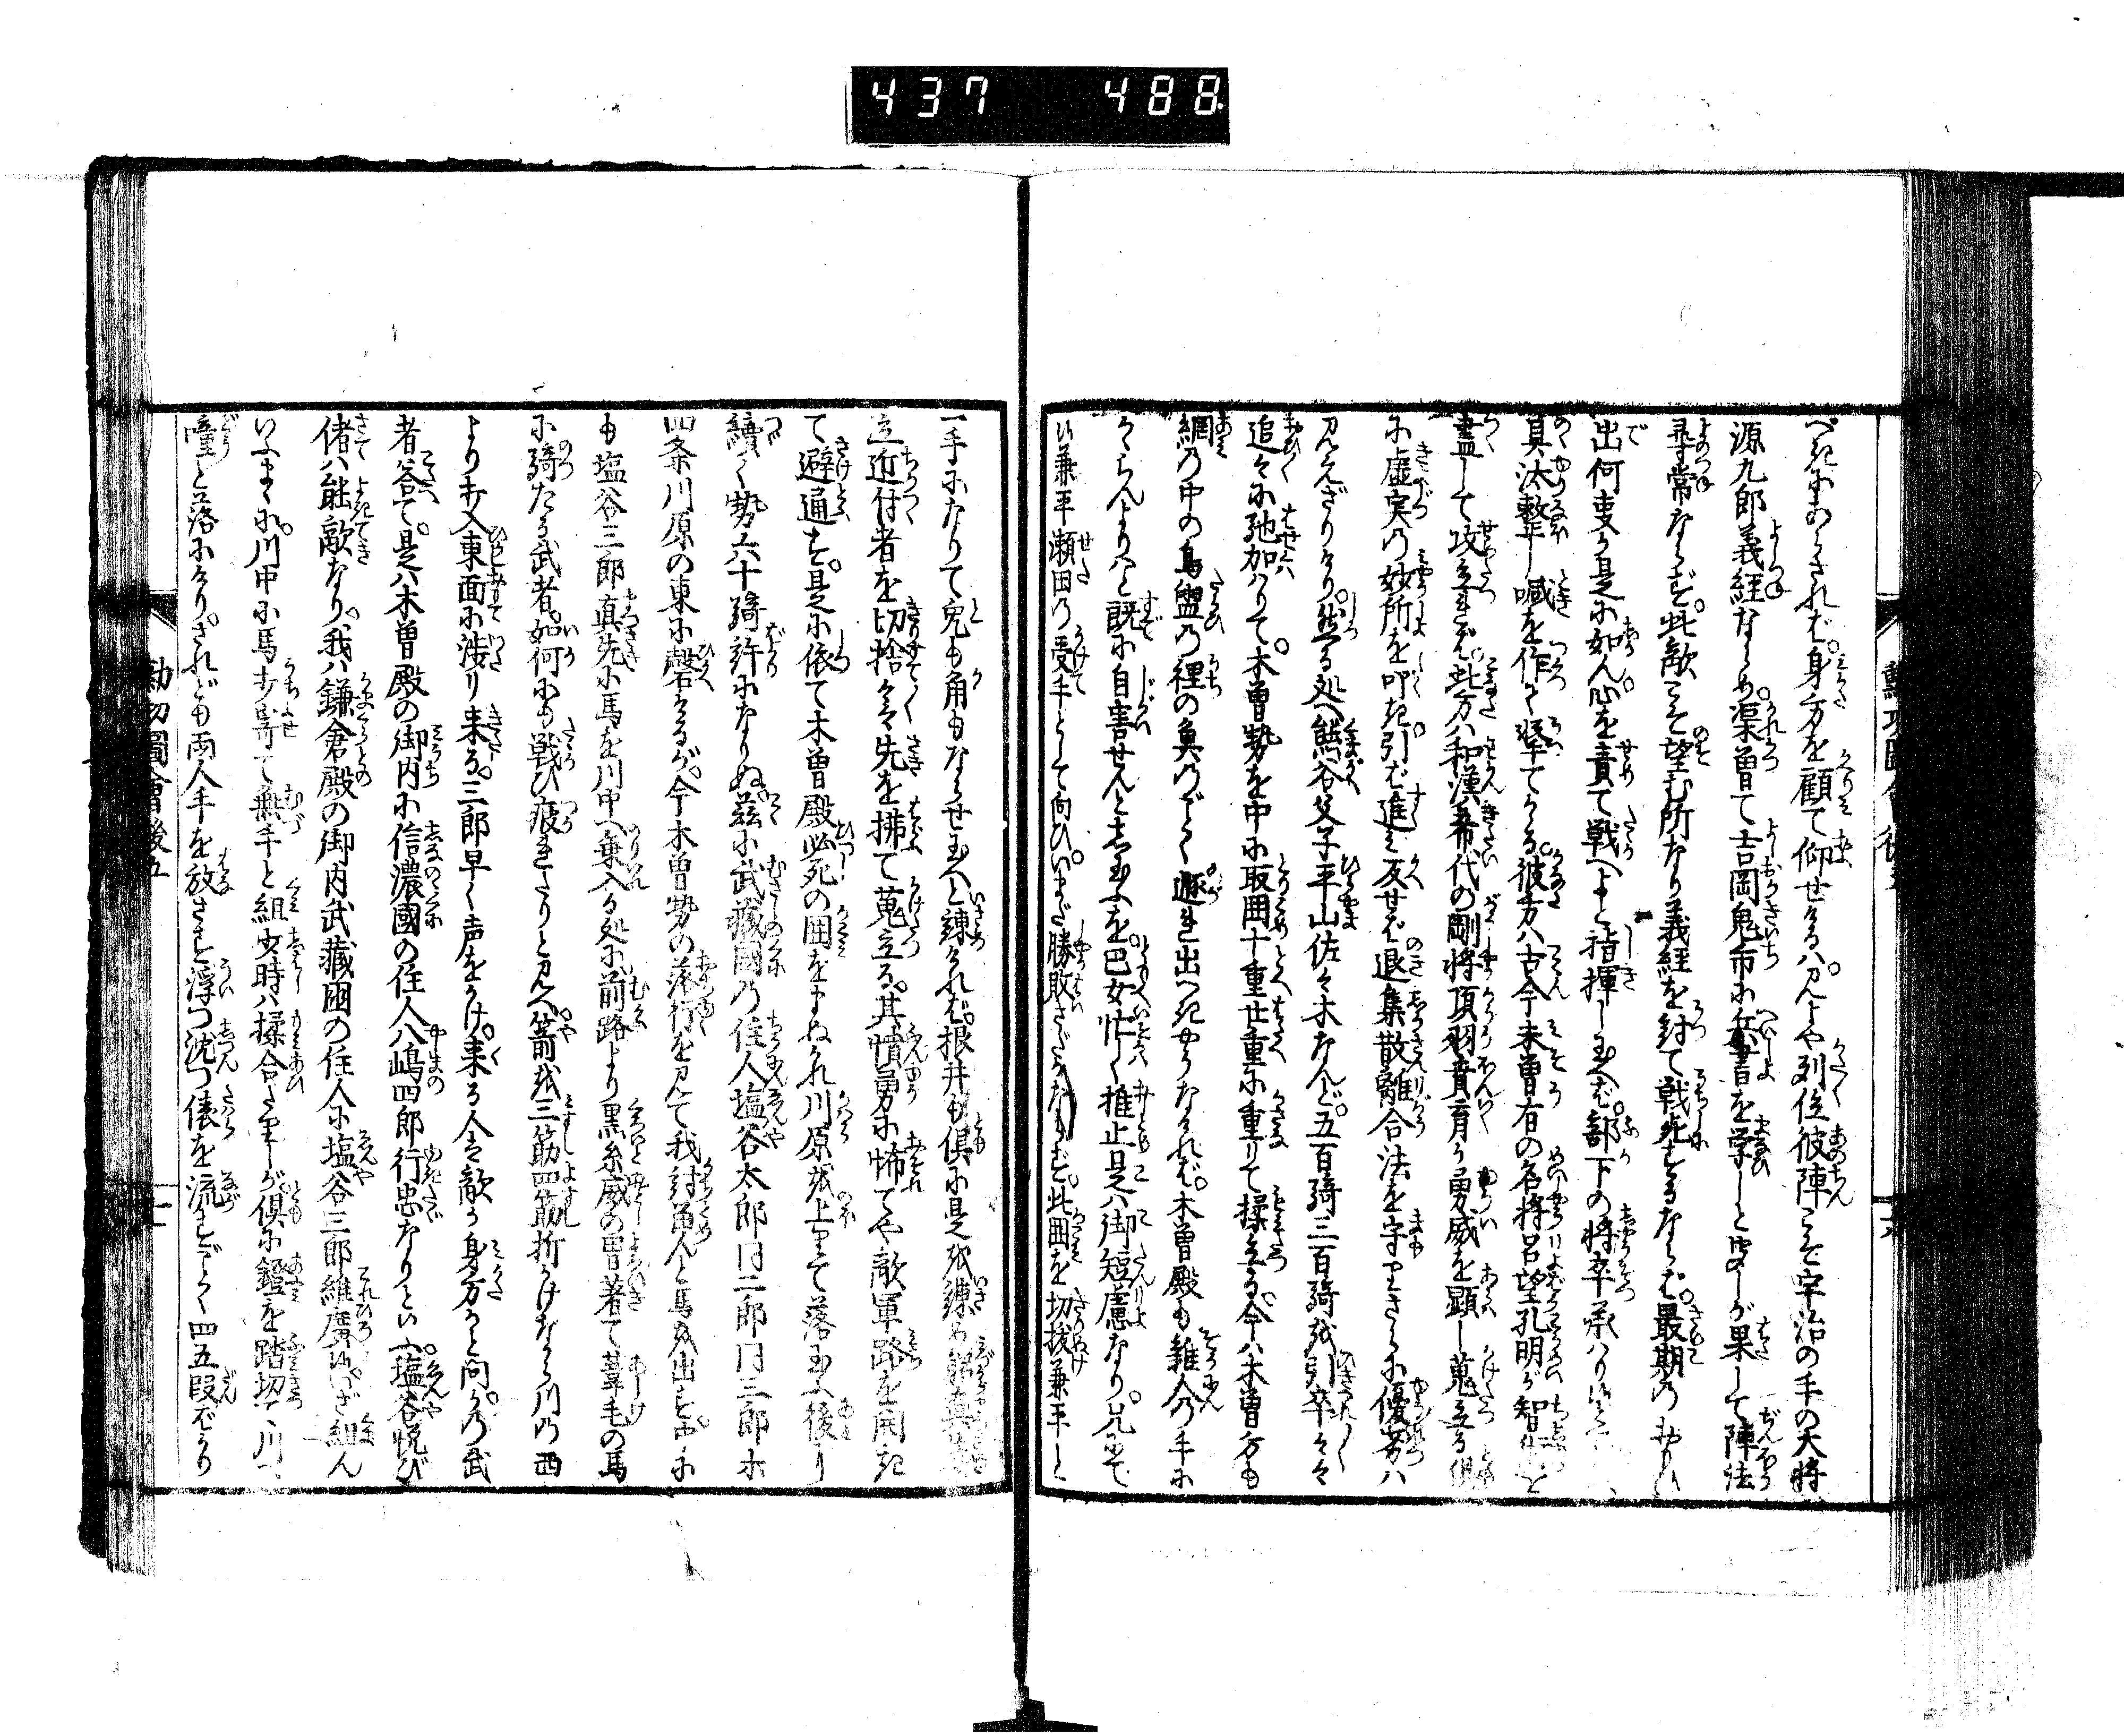 437 488
べきにあらざれば。身方を顧て仰せけるハ。見よや列位彼陣こそ宇治の手の大将
源九郎義経ならめ。渠曽て吉岡鬼一に兵書を学しと聞しが果して陣法
尋常ならず。此敵こそ望む所なり義経を討て戦死するならバ最期の
出何事か是に如ん。心を責て戦へよと指揮し玉へば。部下の将卒承ハり
真汰撃し喊を作て墜てかゝる。彼方ハ古今未曽有の名将呂望孔明が智
盡して攻立れバ。此方ハ和漢希代の剛将項羽賁育が勇威を顕し蒐立る倶
に虚実の妙所を叩き。引ば進み反せば退集散離合法を守りさらに優劣ハ
見えざりけり。然る処へ熊谷父子平山佐々木なんど。五百騎三百騎を引卒々々
追々に馳加ハりて。木曽勢を中に取囲十重廿重に重りて揉立る。今ハ木曽方も
網の中の鳥盥の裡の魚のごとく遁れ出べきやうなけれバ。木曽殿も雑人の手に
かゝらんよりハと既に自害せんとし玉ふを。巴女忙しく推止是ハ御短慮なり。兄
い兼平瀬田の受手として向ひ。いまだ勝敗さだかならず。此囲を切抜兼平と
一手になりて兎も角もならせ玉へと諫けれバ。根井も倶に是を諫め
立近付者を切捨々々先を拂て蒐立る。其憤勇に怖てや敵軍路を開き
て避通す。是に依て木曽殿必死の囲をまぬかれ川原を上りて落玉ふ後に
續く勢六十騎許になりぬ茲に武蔵國の住人塩谷太郎同二郎同三郎ホ
四条川原の東に磬へけるが。今木曽勢の落行を見て我討留んと馬を出す。中に
も塩谷三郎真先に馬を川中へ乗入る処に前路より黒糸威の冑著て葦毛の馬
に騎たる武者。如何にも戦ひ疲れたりと見へ。箭を三筋四筋折かけながら川の西
より打入東面に渉り来る。三郎早く声をかけ。来る人は敵か身方かと問。かの武
者答て。是ハ木曽殿の御内に信濃國の住人八嶋四郎行忠なりといふ。塩谷悦び
偖ハ能敵なり。我ハ鎌倉殿の御内武蔵国の住人に塩谷三郎維廣いざ組ん
いふまゝに。川中に馬打寄て無手と組少時ハ揉合たりしが。倶に鐙を踏切て川へ
噇と落にけり。されども両人手を放さず浮つ沈つ俵を流すごとく四五段ばかり